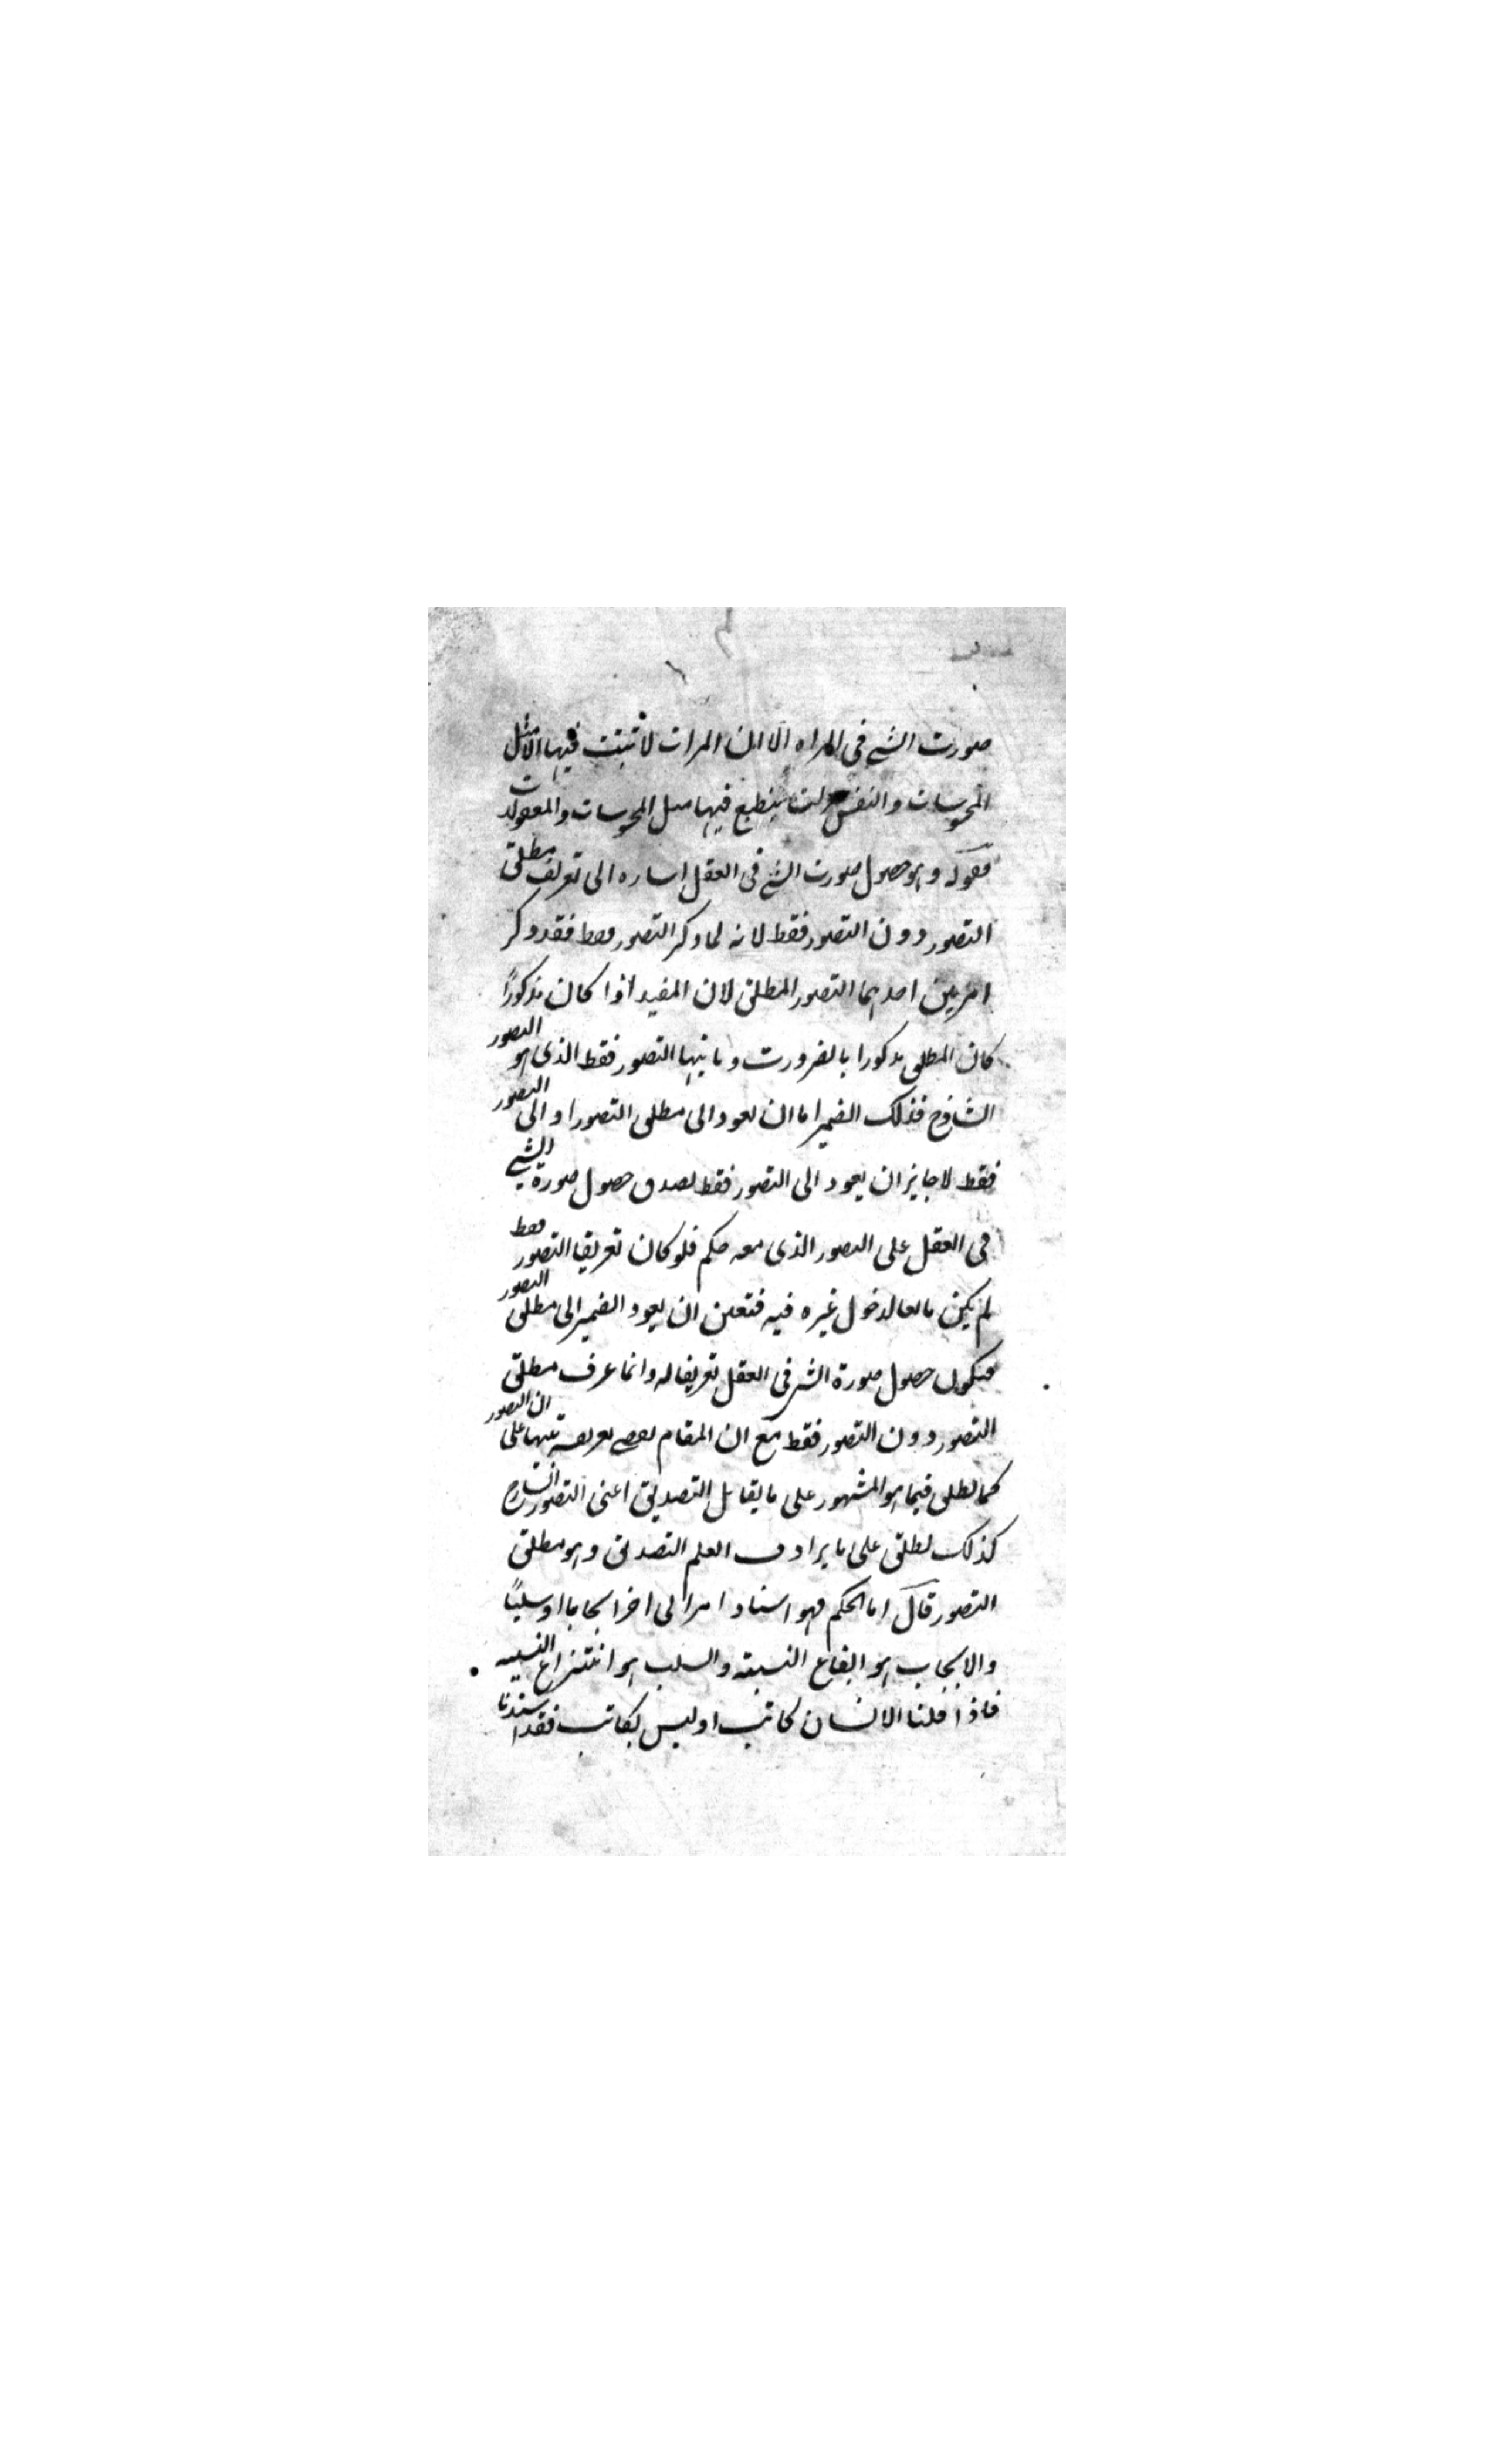 صورت الشی فی المراه الا ان المرات لا تثبت فیها الا مثل
المحسوسات والنفس ینطبع فیها مثل المحسوسات والمعقولات
فقوله وهو حصول صورت الشی فی العقل اشاره الی تعریف مطلق
التصور دون التصور فقط لانه لما ذکر التصور فقط فقد ذکر
امرین احدهما التصور المطلق لان المقید اذا کان مذکورًا
کان المطلق مذکورا بالضرورت وثانیها التصور فقط الذی هو التصور
الساذج فذلک الضمیر اما ان یعود الی مطلق التصور او الی التصور
فقط لا جایز ان یعود الی التصور فقط لصدق حصول صورة الشی
فی العقل علی التصور الذی معه حکم فلو کان تعریفا التصور فقط
لم یکن مانعا لدخول غیره فیه فتعین ان یعود الضمیر الی مطلق التصور
فیکون حصول صورة الشی فی العقل تعریفا له وانما عرف مطلق
التصور دون التصور فقط مع ان المقام یقتضی تعریفه تنبیها علی ان التصور
کما یطلق فیما هو المشهور علی ما یقابل التصدیق اعنی التصور الساذج
کذلک یطلق علی ما یرادف العلم التصدیق وهو مطلق
التصور قال اما الحکم فهو اسناد امر الی اخر ایجابا او سلبًا
والایجاب هو ایقاع النسبة والسلب هو انتزاع النسبه
فاذا قلنا الانسان کاتب او لیس بکاتب فقد اسندنا